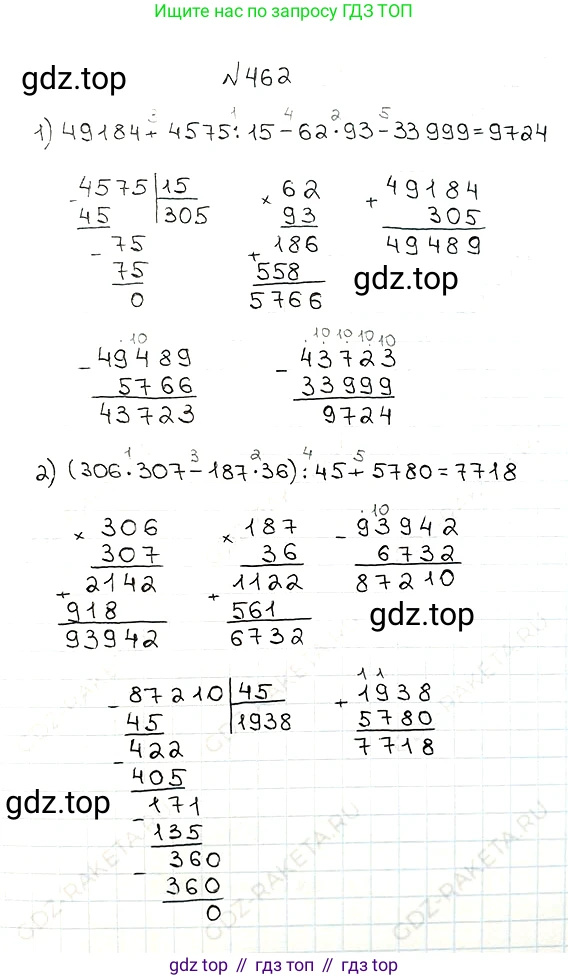 Ищите нас по запросу ГДЗ ТОП
gdz.top
№462
3 1 4 2 5
1) 49184+4575:15-62·93-33999=9724
-4575|15
45 305
-75
75
0
×62
93
+186
558
5766
gdz.top
+49184
305
49489
·10
-49489
5766
43723
·10 10 10 10
-43723
33999
9724
1 3 2 4 5
2) (306·307-187·36):45+5780=7718
×306
307
+2142
918
93942
×187
36
+1122
561
6732
·10
-93942
6732
87210
gdz.top
-87210|45
45 1938
-422
405
-171
135
-360
360
0
1 1
+1938
5780
7718
gdz.top
GDZ-RAKETA.RU
GDZ-RAKETA.RU
GDZ-RAKETA.RU
gdz top // гдз топ // гдз.top